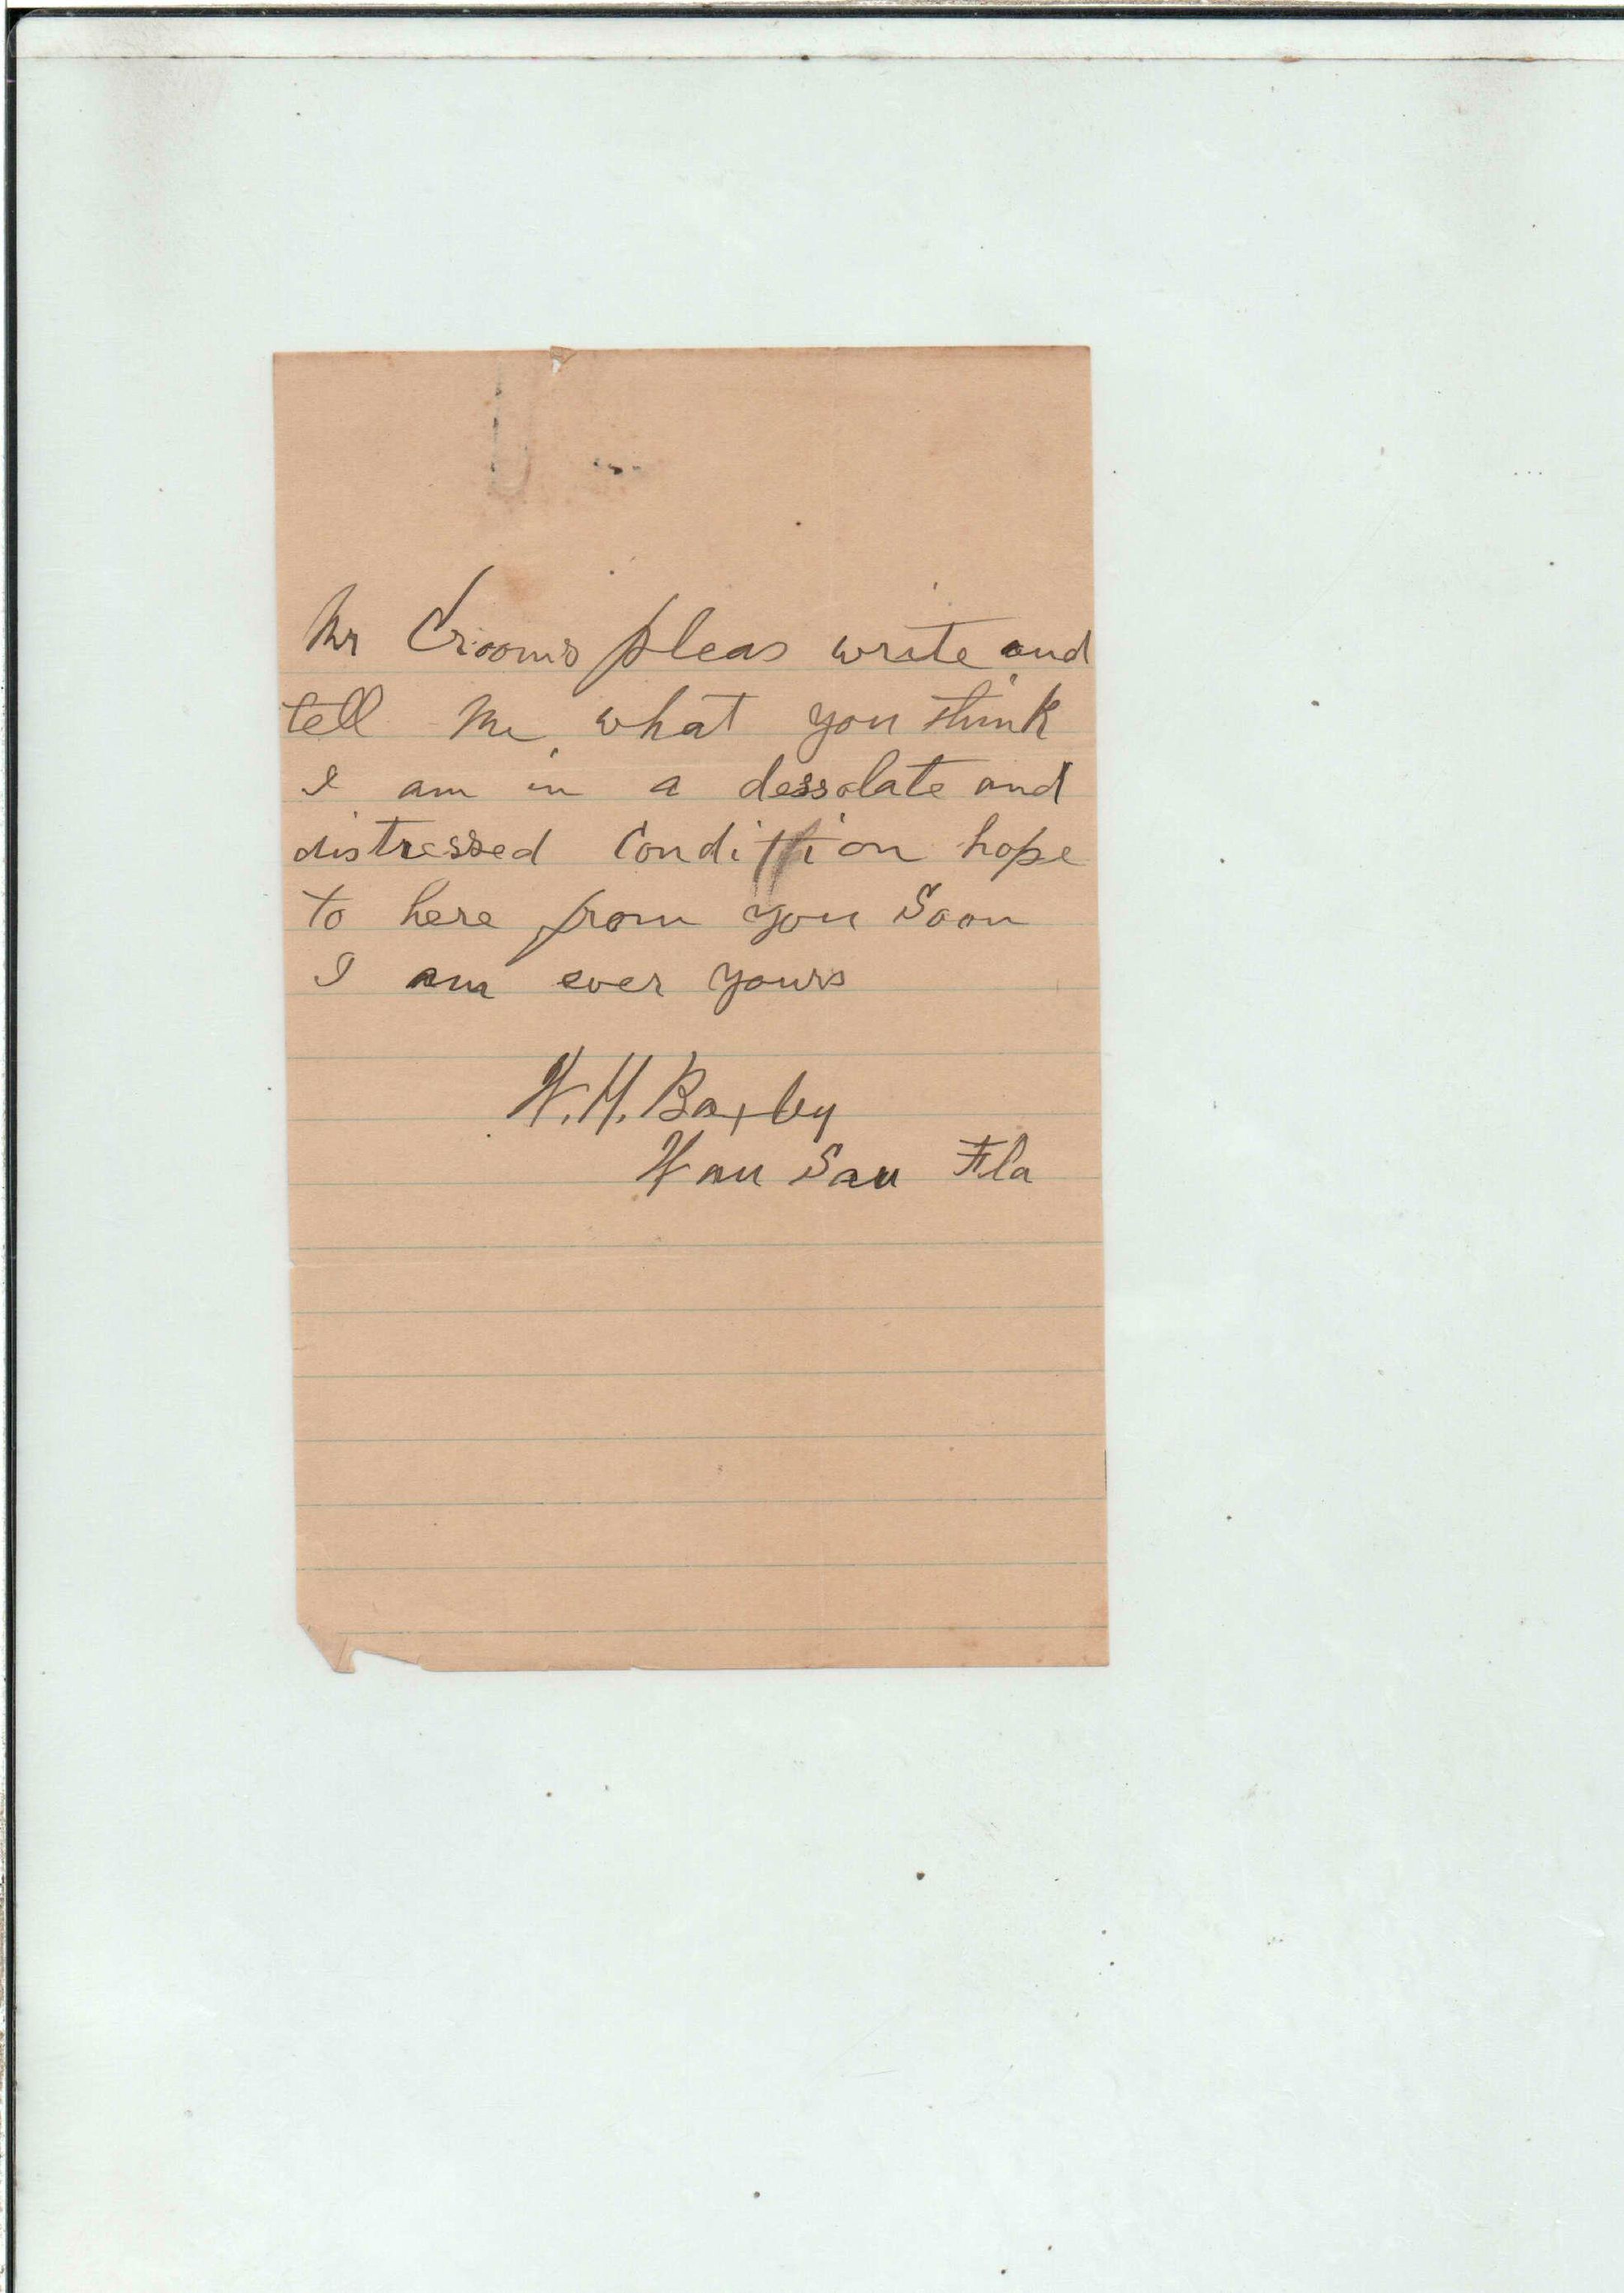 Mr Crooms pleas write and
tell me what you think
I am in a dessolate and
distressed Condittion hope
to here from you Soon
I am ever yours
W. H. Baxley
Wau Sau Fla